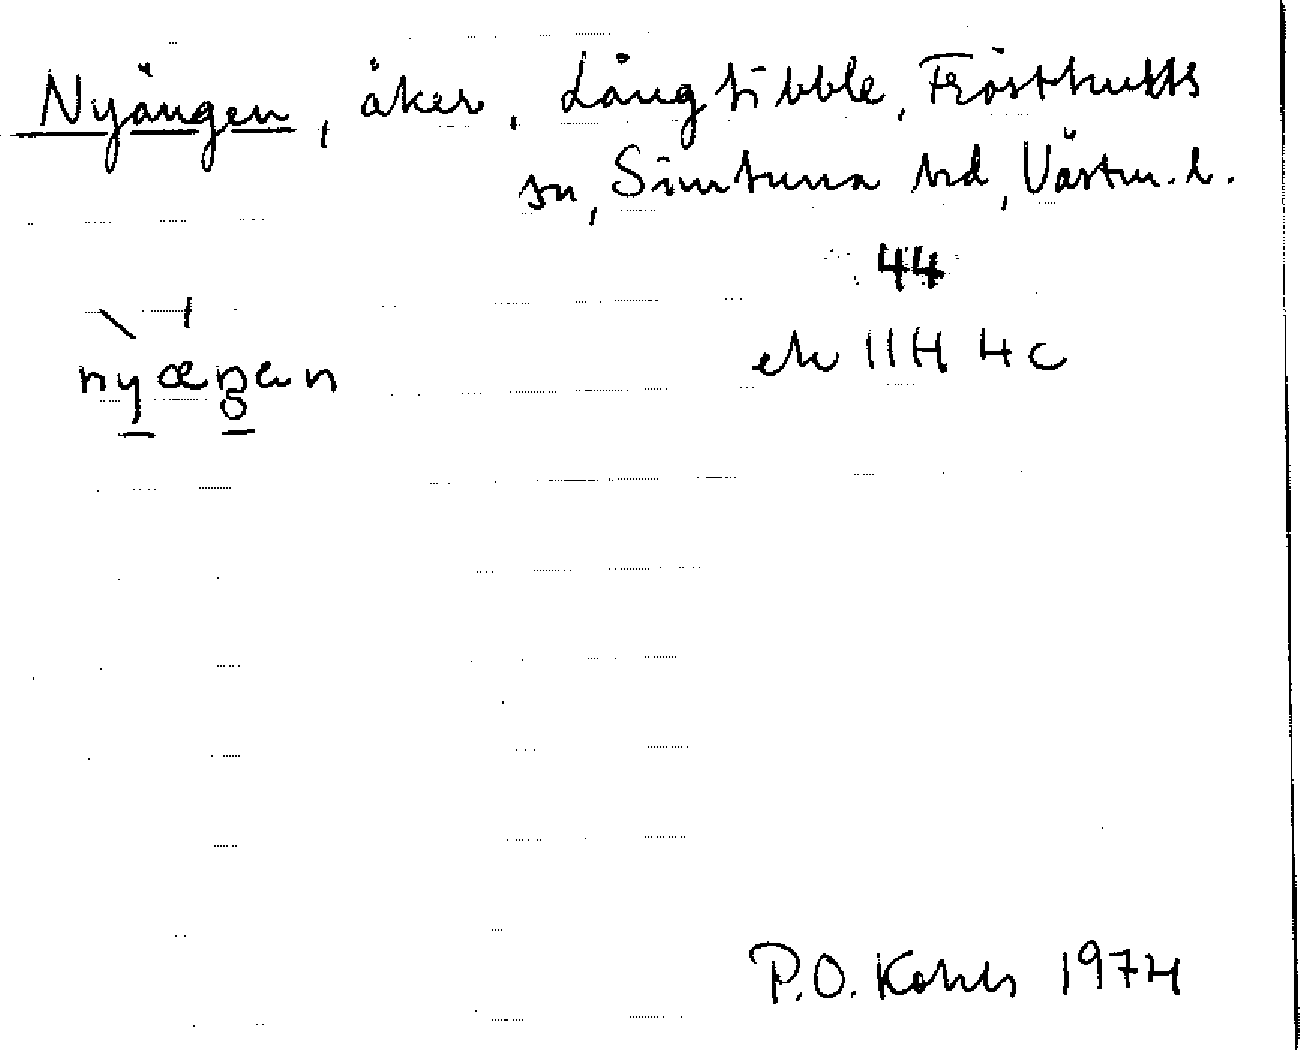 Nyängen, åker, Långtibble, Frösthults
sn, Simtuna hd, Västm. l.
44
ek 11H 4c
nyæŋen
P.O. 1974